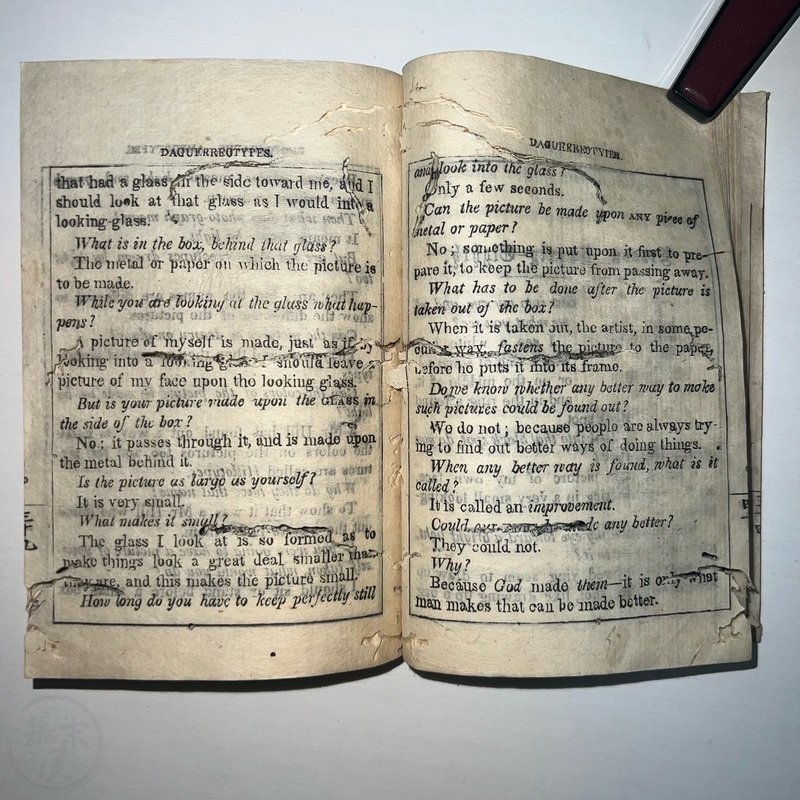 DAGUERREOTYPES.
that had a glass in the side toward me, and I
should look at that glass as I would into a
looking-glass.
What is in the box, behind that glass?
The metal or paper on which the picture is
to be made.
While you are looking at the glass what hap-
pens?
A picture of myself is made, just as if by
looking into a looking glass I should leave a
picture of my face upon the looking glass.
But is your picture made upon the GLASS in
the side of the box?
No; it passes through it, and is made upon
the metal behind it.
Is the picture as large as yourself?
It is very small.
What makes it small?
The glass I look at is so formed as to
make things look a great deal smaller than
they are, and this makes the picture small.
How long do you have to keep perfectly still
DAGUERREOTYPES.
and look into the glass?
Only a few seconds.
Can the picture be made upon ANY piece of
metal or paper?
No; something is put upon it first to pre-
pare it, to keep the picture from passing away.
What has to be done after the picture is
taken out of the box?
When it is taken out, the artist, in some pe-
way, fastens the picture to the paper,
before he puts it into its frame.
Do we know whether any better way to make
such pictures could be found out?
We do not; because people are always try-
ing to find out better ways of doing things.
When any better way is found, what is it
called?
It is called an improvement.
Could any better?
They could not.
Why?
Because God made them—it is only what
man makes that can be made better.